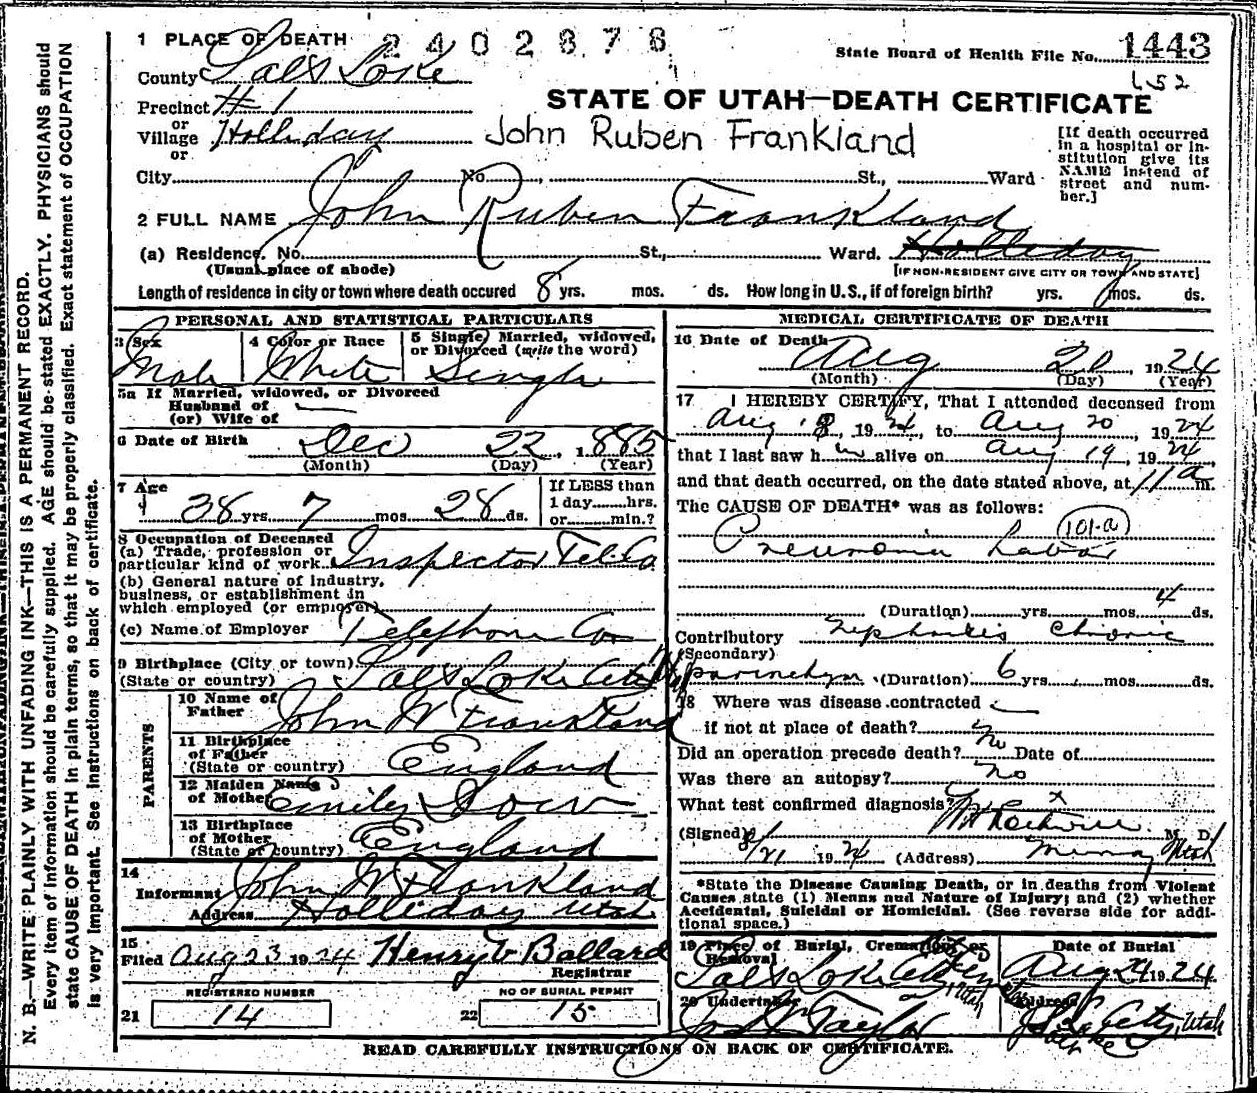 1 PLACE OF DEATH 2402678
State Board of Health File No. 1443
County Salt Lake
652
Precinct # 1
STATE OF UTAH—DEATH CERTIFICATE
or
Village Holliday
John Ruben Frankland
or
[If death occurred in a hospital or institution give its NAME instead of street and number.]
City No. St., Ward
2 FULL NAME John Ruben Frankland
(a) Residence. No. St., Ward. Holliday
(Usual place of abode) [IF NON-RESIDENT GIVE CITY OR TOWN AND STATE]
Length of residence in city or town where death occured 8 yrs. mos. ds. How long in U.S., if of foreign birth? yrs. mos. ds.
PERSONAL AND STATISTICAL PARTICULARS
3 Sex 4 Color or Race 5 Single, Married, widowed,
or Divorced (write the word)
Male White Single
5a If Married, widowed, or Divorced
Husband of
(or) Wife of
6 Date of Birth Dec 22, 1885
(Month) (Day) (Year)
7 Age If LESS than
38 yrs. 7 mos. 28 ds. 1 day hrs.
or min.?
8 Occupation of Deceased
(a) Trade, profession or
particular kind of work Inspector Tel Co
(b) General nature of Industry,
business, or establishment in
which employed (or employer)
(c) Name of Employer Telephone Co
9 Birthplace (City or town) Salt Lake City
(State or country)
PARENTS
10 Name of
Father John W Frankland
11 Birthplace
of Father
(State or country) England
12 Maiden Name
of Mother Emily
13 Birthplace
of Mother
(State or country) England
14
Informant John W Frankland
Address Holliday Utah
15
Filed Aug 23 1924 Henry V Ballard
Registrar
REGISTERED NUMBER NO OF BURIAL PERMIT
21 14 22 15
MEDICAL CERTIFICATE OF DEATH
16 Date of Death
Aug 20, 1924
(Month) (Day) (Year)
17 I HEREBY CERTIFY, That I attended deceased from
Aug 18, 1924, to Aug 20, 1924
that I last saw him alive on Aug 19, 1924
and that death occurred, on the date stated above, at 11 a m.
The CAUSE OF DEATH* was as follows:
101-a
Pneumonia Lobar
(Duration) yrs. mos. 4 ds.
Contributory Nephritis Chronic
(Secondary)
(Duration) 6 yrs. mos. ds.
18 Where was disease contracted
if not at place of death?
Did an operation precede death? no Date of
Was there an autopsy? no
What test confirmed diagnosis? x
(Signed) M. D.
8/21 1924 (Address) Murray Utah
*State the Disease Causing Death, or in deaths from Violent
Causes state (1) Menns nud Nature of Injury; and (2) whether
Accidental, Suicidal or Homicidal. (See reverse side for addi-
tional space.)
19 Place of Burial, Cremation or
Removal Date of Burial
Salt Lake City Utah Aug 24 1924
20 Undertaker Address
Jos Wm Taylor Salt Lake City, Utah
READ CAREFULLY INSTRUCTIONS ON BACK OF CERTIFICATE.
N. B.—WRITE PLAINLY WITH UNFADING INK—THIS IS A PERMANENT RECORD.
Every item of information should be carefully supplied. AGE should be stated EXACTLY. PHYSICIANS should
state CAUSE OF DEATH in plain terms, so that it may be properly classified. Exact statement of OCCUPATION
is very important. See instructions on back of certificate.